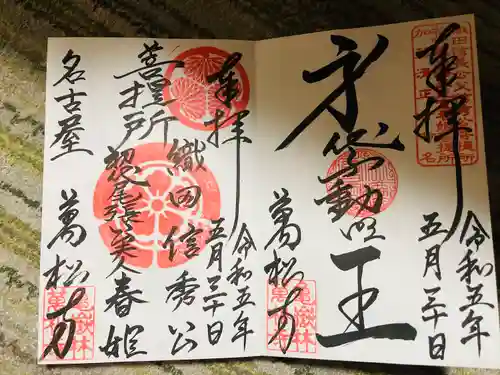 奉拝
令和五年
五月三十日
身代不動明王
萬松寺
亀嶽林
奉拝
令和五年
五月三十日
織田信秀公
春姫
菩提所
名古屋 萬松寺
亀嶽林